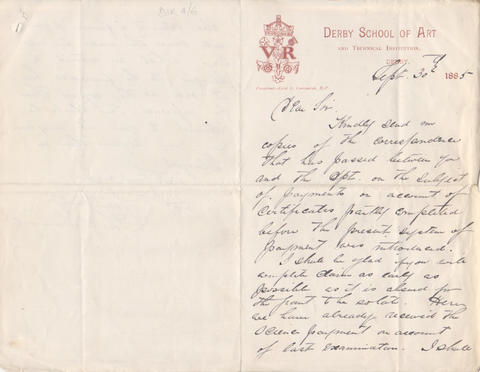 DERBY SCHOOL OF ART
AND TECHNICAL INSTITUTION,
DERBY.
V R
Sept. 30th 1885
Dear Sir.
Kindly send me
copies of the correspondence
that has passed between you
and the Dpt. on the subject
of payments on account of
Certificates partly completed
before the present system of
payment was introduced.
I shall be glad if you will
complete claim as early as
possible as it is absurd for
the grant to be so late. Here
we have already received the
Science payment on account
of last Examination. I shall